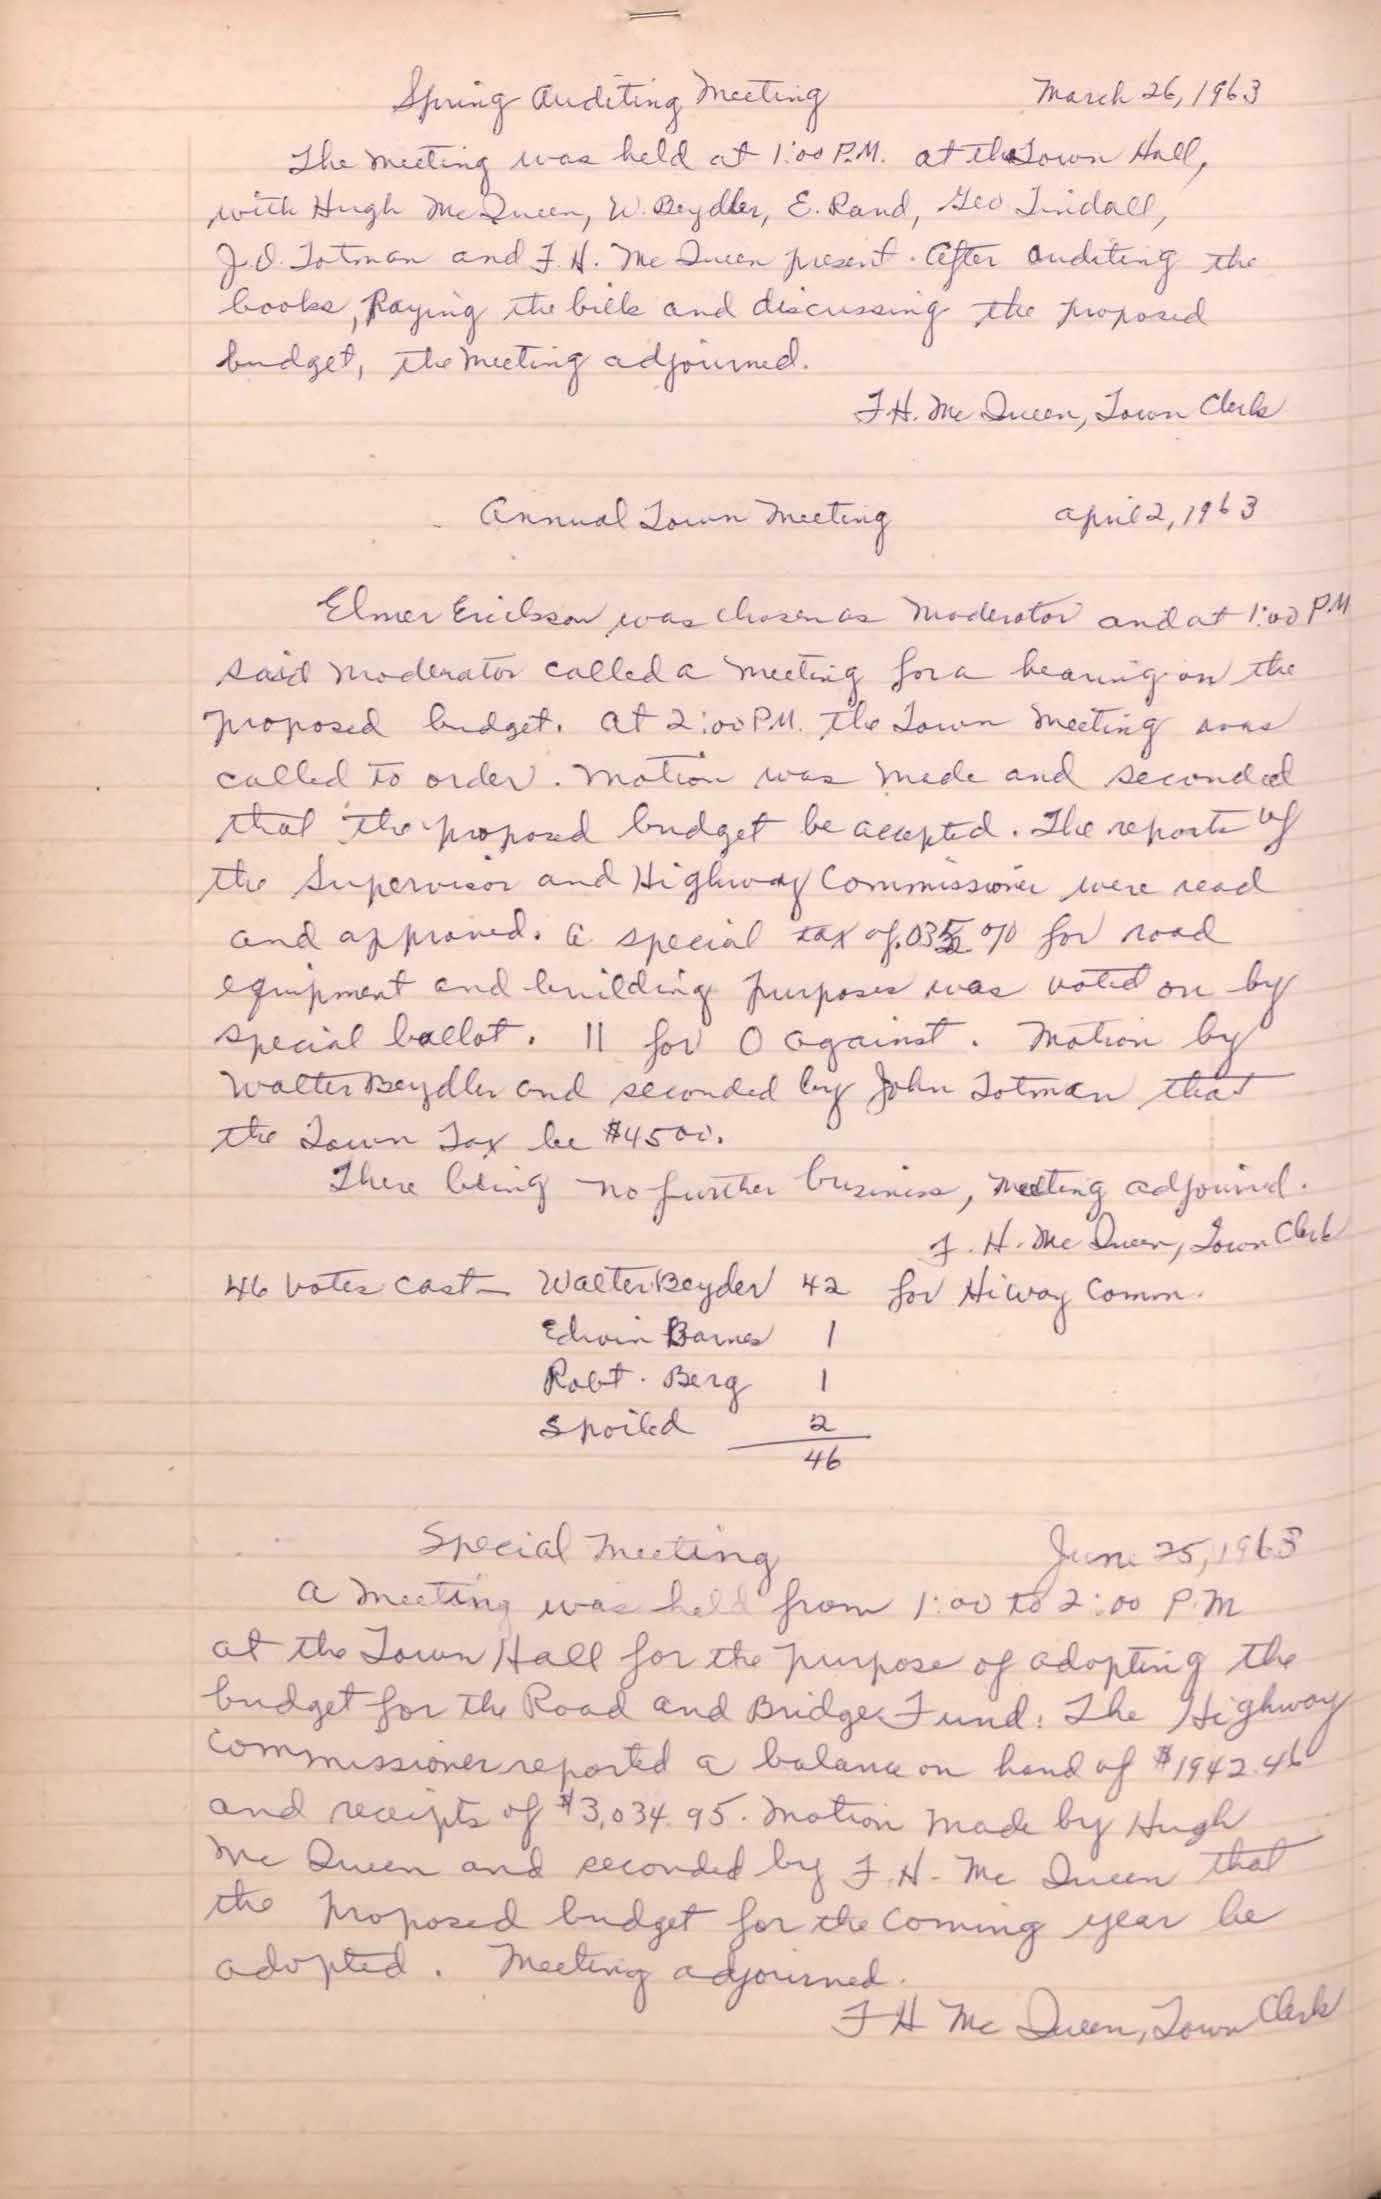 Spring Auditing Meeting March 26, 1963
The meeting was held at 1:00 P.M. at the Town Hall,
with Hugh McQueen, W. Beydler, E. Rand, Geo Tindall,
J.O. Totman and F.H. McQueen present. After auditing the
books, Paying the bills and discussing the proposed
budget, the meeting adjourned.
F.H. McQueen, Town Clerk
Annual Town Meeting April 2, 1963
Elmer Erickson was chosen as Moderator and at 1:00 P.M
said moderator called a meeting for a hearing on the
proposed budget. At 2:00 P.M. the Town Meeting was
called to order. Motion was made and seconded
that the proposed budget be accepted. The reports of
the Supervisor and Highway Commissioner were read
and approved. A special tax of % for road
equipment and building purposes was voted on by
special ballot. 11 for 0 against. Motion by
Walter Beydler and seconded by John Totman that
the Town Tax be $4500.
There being no further business, meeting adjourned.
F. H. McQueen, Town Clerk
46 votes cast — Walter Beyder 42 for Hiway Comm.
Edwin Barnes 1
Robt. Berg 1
Spoiled 2
46
Special Meeting June 25, 1963
A meeting was held from 1:00 to 2:00 P.M
at the Town Hall for the purpose of adopting the
budget for the Road and Bridge Fund. The Highway
Commissioner reported a balance on hand of $1942.46
and receipts of $3,034.95. Motion made by Hugh
McQueen and seconded by F.H. McQueen that
the proposed budget for the coming year be
adopted. Meeting adjourned.
F H McQueen, Town Clerk